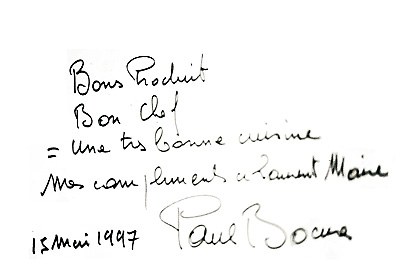 Bons Produit
Bon chef
= une trs bonne cuisine
Mes compliments a Laurent Maire
15 Mai 1997 Paul Bocuse